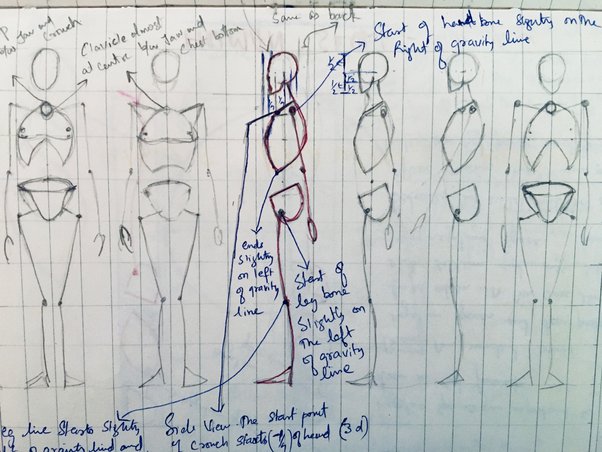 Same as back
Start of hand bone slightly on the
Right of gravity line
P
b/w Jaw and
Crouch
Clavicle almost
at centre b/w Jaw and
chest bottom
1/2
1/2
1/2
1/2
1/2
1/2
ends
slightly
on left
of gravity
line
Start of
leg bone
Slightly on
The left
of gravity
line
leg line Starts Slightly
of gravity line and
Side View. The Start point
of Crouch Starts of head